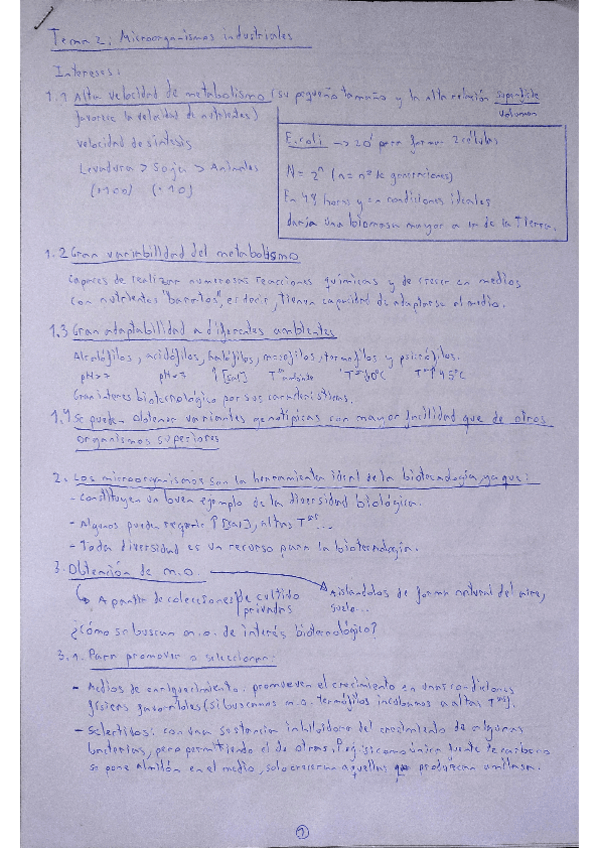 Tema 2: Microorganismos industriales
Intereses:
1.1 Alta velocidad de metabolismo (su pequeño tamaño y la alta relación superficie
volumen
favorece la velocidad de nutrientes)
velocidad de síntesis
Levaduras > Soja > Animales
E.coli → 20' para formar 2 células
N = 2ⁿ (n = nº de generaciones)
En 48 horas y en condiciones ideales
daría una biomasa mayor a la de la Tierra.
1.2 Gran variabilidad del metabolismo
capaces de realizar numerosas reacciones químicas y de crecer en medios
con nutrientes "baratos", es decir, tienen capacidad de adaptarse al medio.
1.3 Gran adaptabilidad a diferentes ambientes
Alcalófilos, acidófilos, halófilos, mesófilos, termófilos y psicrófilos.
pH>> ↑[sal] Tª ambiente
Gran interes biotecnológico por sus características.
1.4 Se pueden obtener variantes genotípicas con mayor facilidad que de otros
organismos superiores
2. Los microorganismos son la herramienta ideal de la biotecnología, ya que:
- Constituyen un buen ejemplo de la diversidad biológica.
- Algunos pueden requerir ↑[sal], altas Tªˢ...
- Toda diversidad es un recurso para la biotecnología.
3. Obtención de m.o.
A partir de colecciones de cultivo
privadas
Aislandolos de forma natural del aire,
suelo...
¿Cómo se buscan m.o. de interés biotecnológico?
3.1. Para promover o seleccionar:
- Medios de enriquecimiento: promueven el crecimiento en unas condiciones
físicas favorables (si buscamos m.o. termófilos incubamos a altas Tªˢ).
- Selectivos: con una sustancia inhibidora del crecimiento de algunas
bacterias, pero permitiendo el de otras. P.ej: si como única fuente de carbono
se pone Almidón en el medio, solo crecerían aquellas que produzcan amilasa.
1